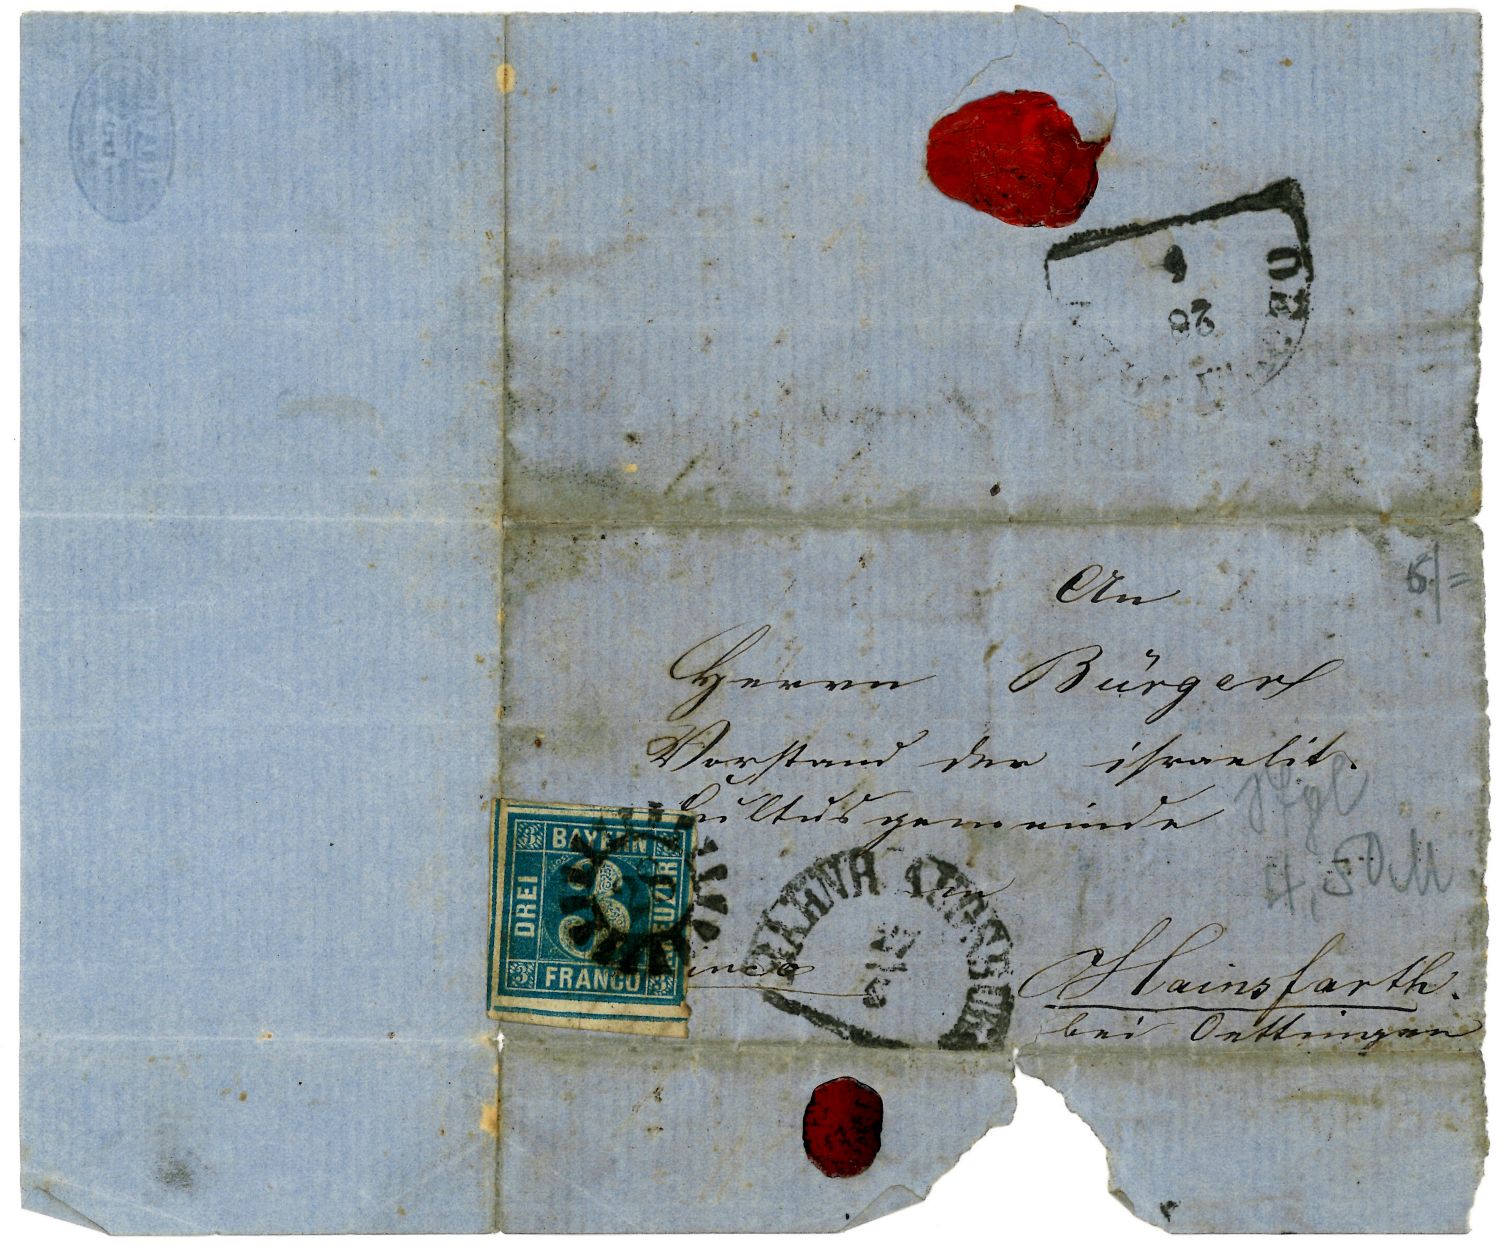 OE
28
An
Herrn Bürger
Vorstand der israelit.
Cultusgemeinde
in
Hainsfarth.
bei Oettingen
BAYERN
DREI
KREUZER
FRANCO
3 3
3 3
BAHNH AUGSBURG
4,50 M